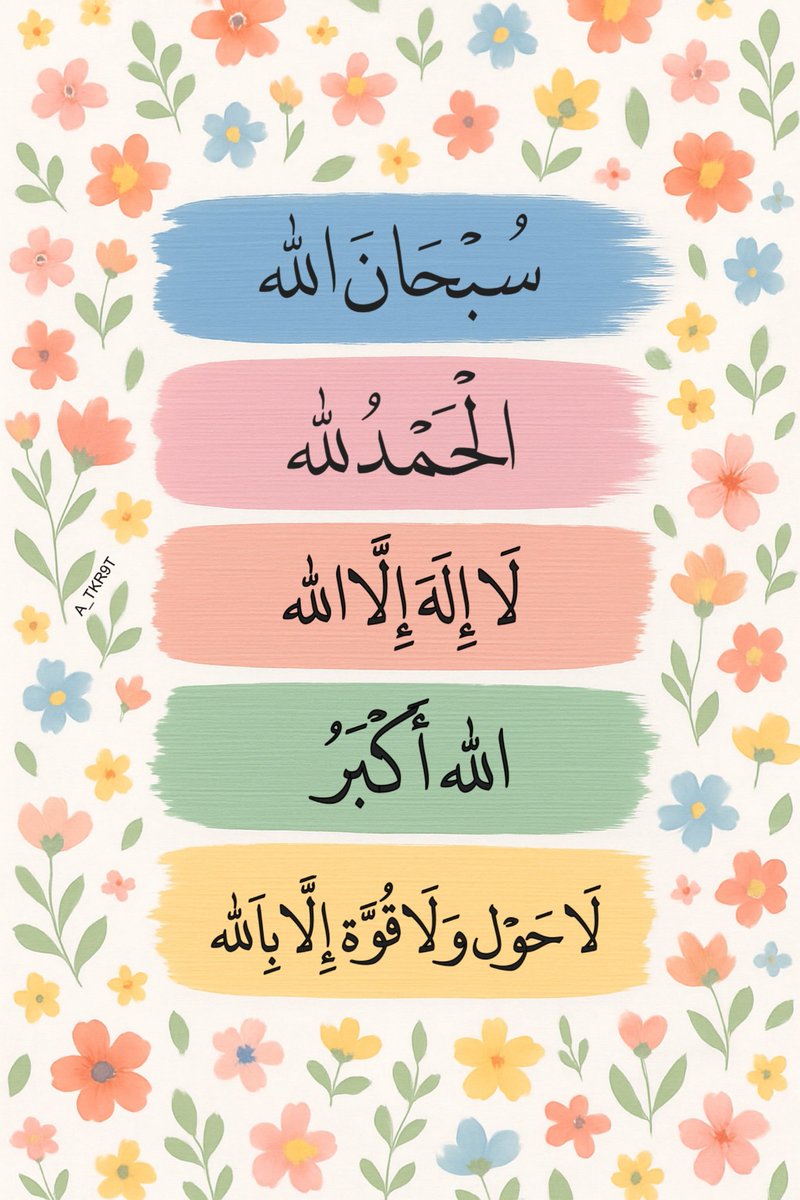 سُبْحَانَ الله
الْحَمْدُ لله
لَا إِلَهَ إِلَّا الله
الله أَكْبَرُ
لَا حَوْل وَلَا قُوَّة إِلَّا بِاَلله
A_TKR9T